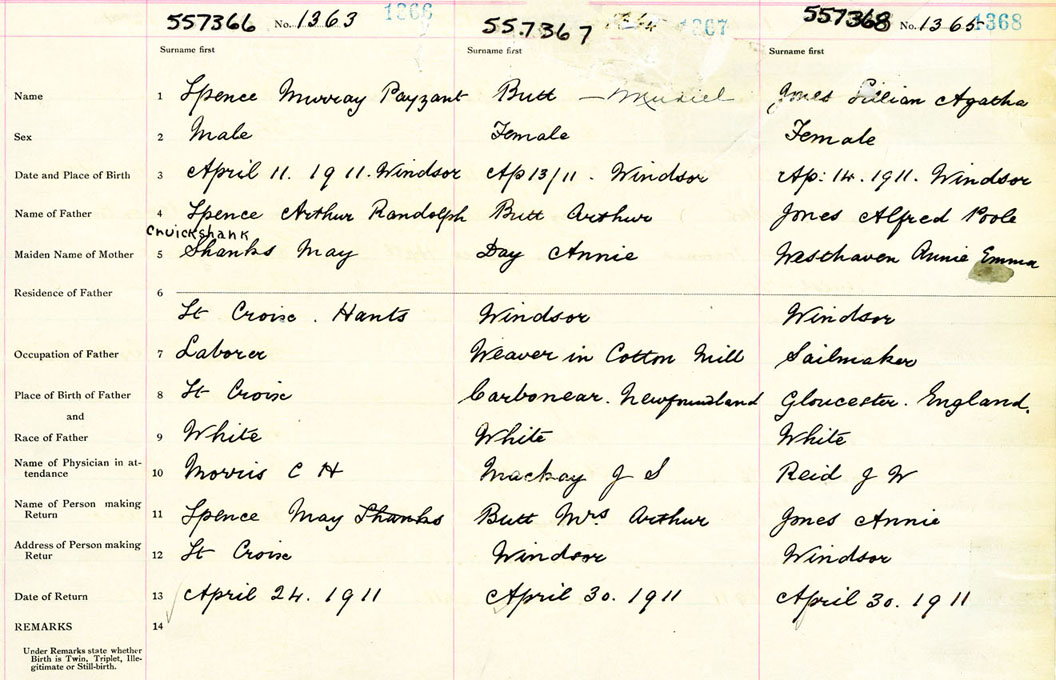 557366 No. 1363 1366 557367 1367 557368 No. 1365 1368
Surname first Surname first Surname first
Name 1 Spence Murray Payzant Butt — Muriel Jones Lillian Agatha
Sex 2 Male Female Female
Date and Place of Birth 3 April 11. 1911. Windsor Ap 13/11 . Windsor Ap: 14. 1911. Windsor
Name of Father 4 Spence Arthur Randolph Butt Arthur Jones Alfred Poole
Cruickshank
Maiden Name of Mother 5 Shanks May Day Annie Westhaven Annie Emma
Residence of Father 6
St Croix . Hants Windsor Windsor
Occupation of Father 7 Laborer Weaver in Cotton Mill Sailmaker
Place of Birth of Father 8 St Croix Carbonear. Newfoundland Gloucester. England.
and
Race of Father 9 White White White
Name of Physician in at-
tendance 10 Morris C H Mackay J S Reid J W
Name of Person making
Return 11 Spence May Shanks Butt Mrs Arthur Jones Annie
Address of Person making
Retur 12 St Croix Windsor Windsor
Date of Return 13 April 24. 1911 April 30. 1911 April 30. 1911
REMARKS 14
Under Remarks state whether
Birth is Twin, Triplet, Ille-
gitimate or Still-birth.